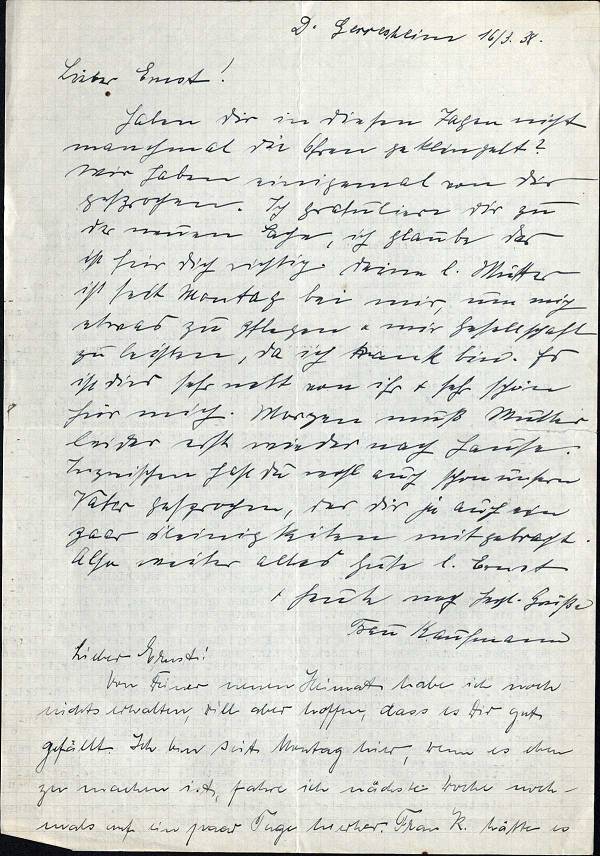 D. Gerresheim 16/3. 38.
Lieber Ernst!
Haben dir in diesen Tagen nicht
manchmal die Ohren geklingelt?
Wir haben einigemal von dir
gesprochen. Ich gratuliere dir zu
der neuen Sache, ich glaube das
ist für dich richtig. Deine l. Mutter
ist seit Montag bei mir, um mich
etwas zu pflegen + mir Gesellschaft
zu leisten, da ich krank bin. Es
ist dies sehr nett von ihr + sehr schön
für mich. Morgen muß Mutter
leider erst wieder nach Hause.
Inzwischen hast du wohl auch schon unsern
Vater gesprochen, der dir ja auch ein
paar Kleinigkeiten mitgebracht.
Also weiter alles Gute l. Ernst
+ heute noch herzl. Grüße
Frau Kaufmann
Lieber Ernst!
Von Deiner neuen Heimat habe ich noch
nichts erhalten, will aber hoffen, dass es Dir gut
gefällt. Ich bin seit Montag hier, wenn es eben
zu machen ist, fahre ich nächste Woche noch-
mals auf ein paar Tage hierher. Frau K. hätte es